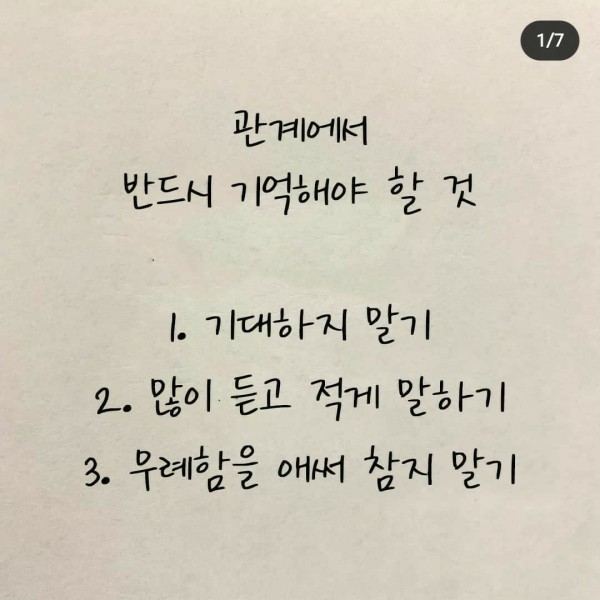 1/7
관계에서
반드시 기억해야 할 것
1. 기대하지 말기
2. 많이 듣고 적게 말하기
3. 무례함을 애써 참지 말기